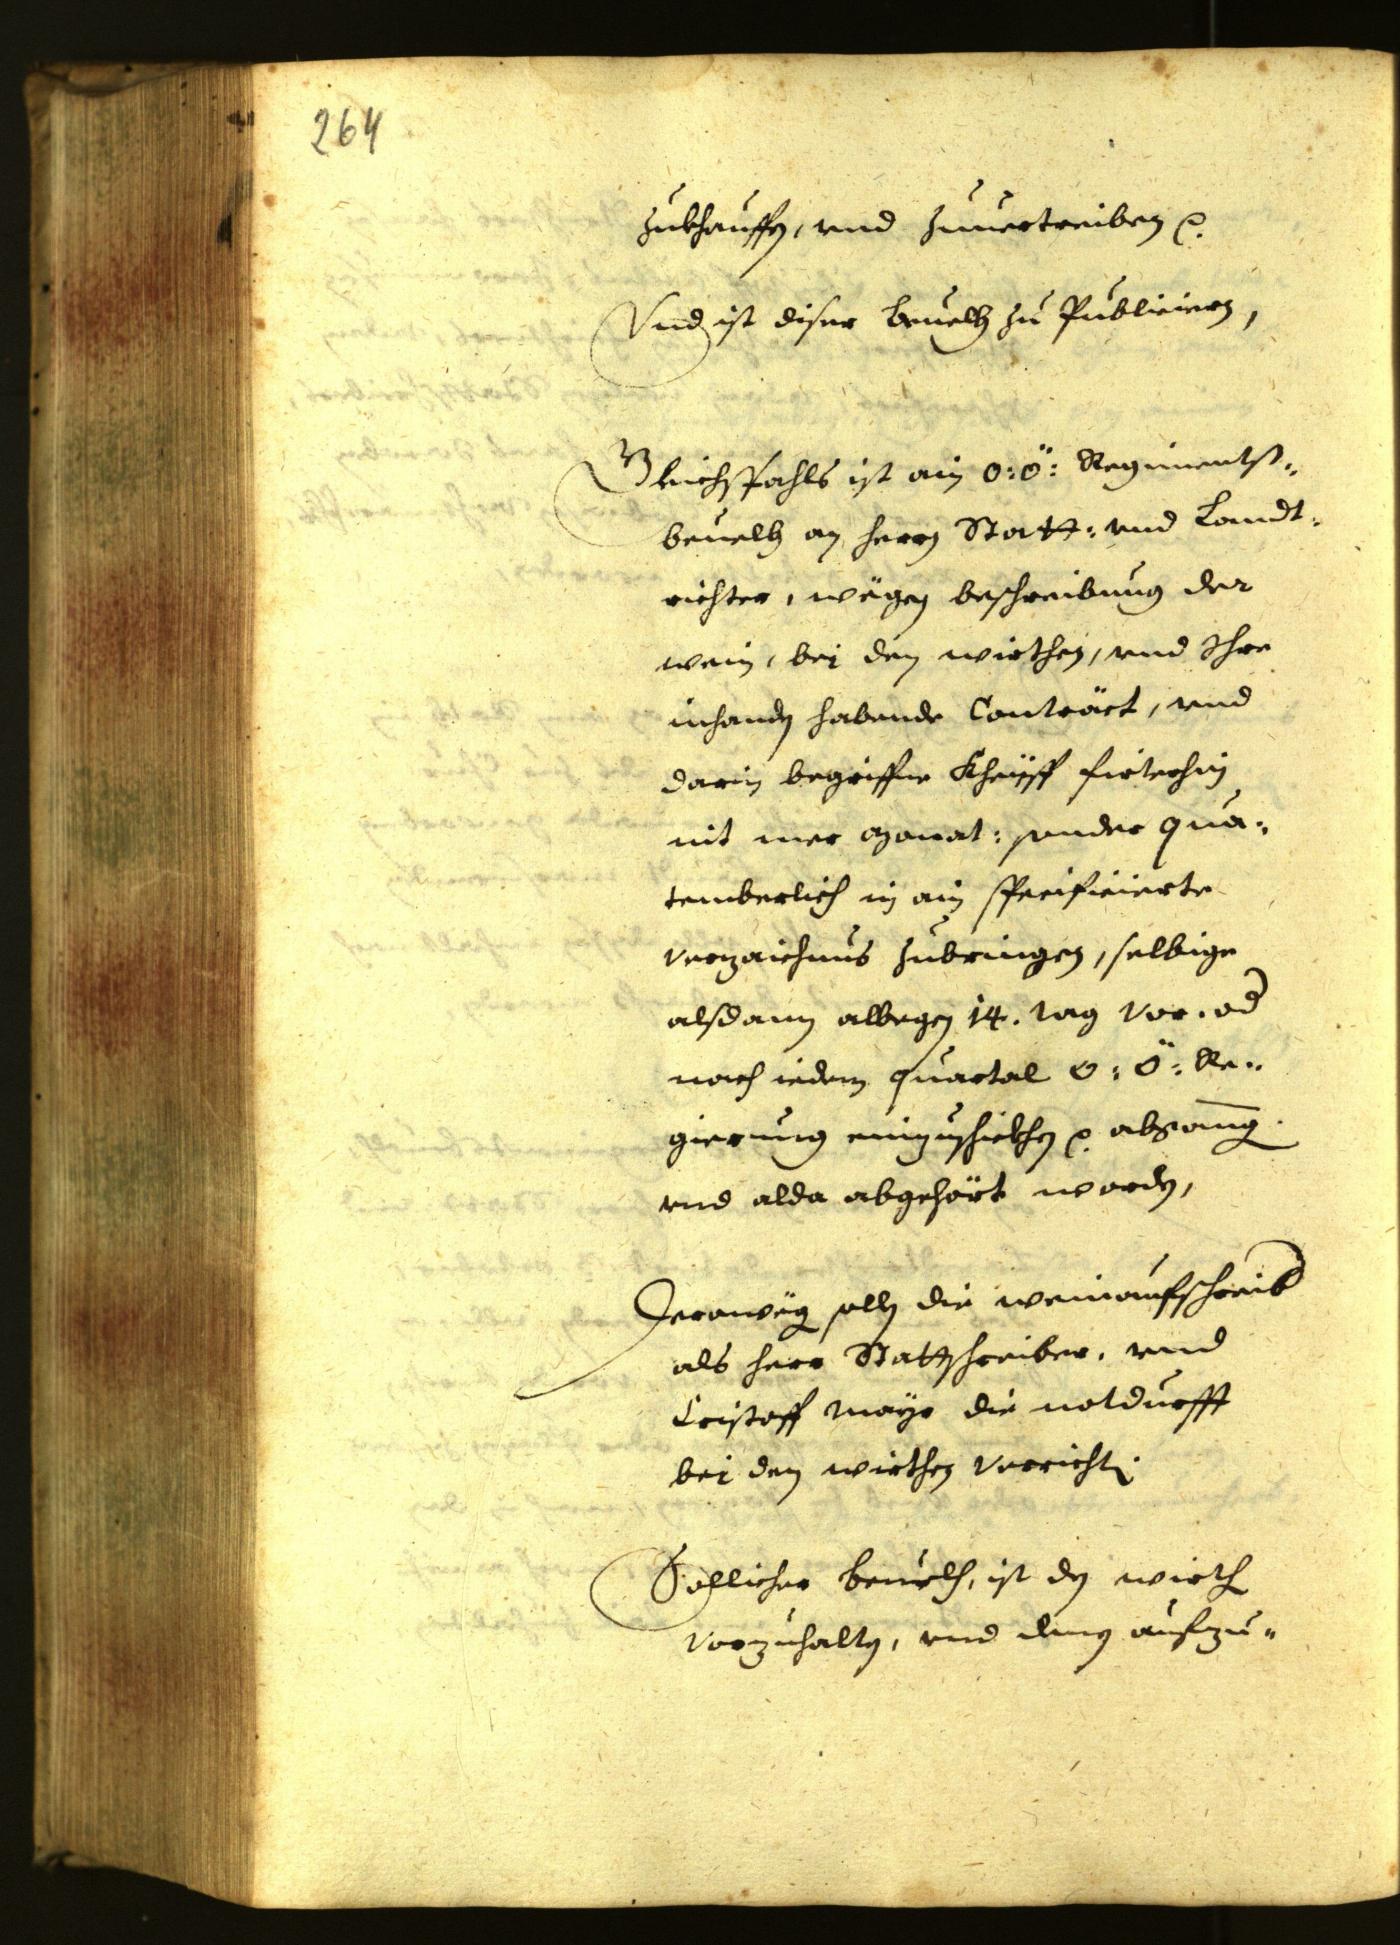 264
zukhauffen, vnd zuuertreiben p.
Vnd ist diser beuelh zu Publiciern,
Gleichsfahls ist ain O: Ö: Regiments-
beuelh an herrn Statt: vnd Landt-
richter, wëgen beschreibung der
wein, bei den wirthen, vnd Ihre
inhanden habende Conträct, vnd
darin begriffne Kheüff fürterhin
nit mer monat: sonder qua-
temberlich in ain specificierte
verzaichnus zubringen, selbige
alsdann allwegen 14. tag vor. od
nach iedem quartal O: Ö: Re-
gierung einzuschikhen p. abgang
vnd alda abgehört worden,
Derowëg sollen die weinaufschreib
als herr Stattschreiber, vnd
Cristoff Mayr die notdurfft
bei den wirthen verrichten.
Sollicher beuelh, ist den wirth
vorzuhalten, vnd aufzu-